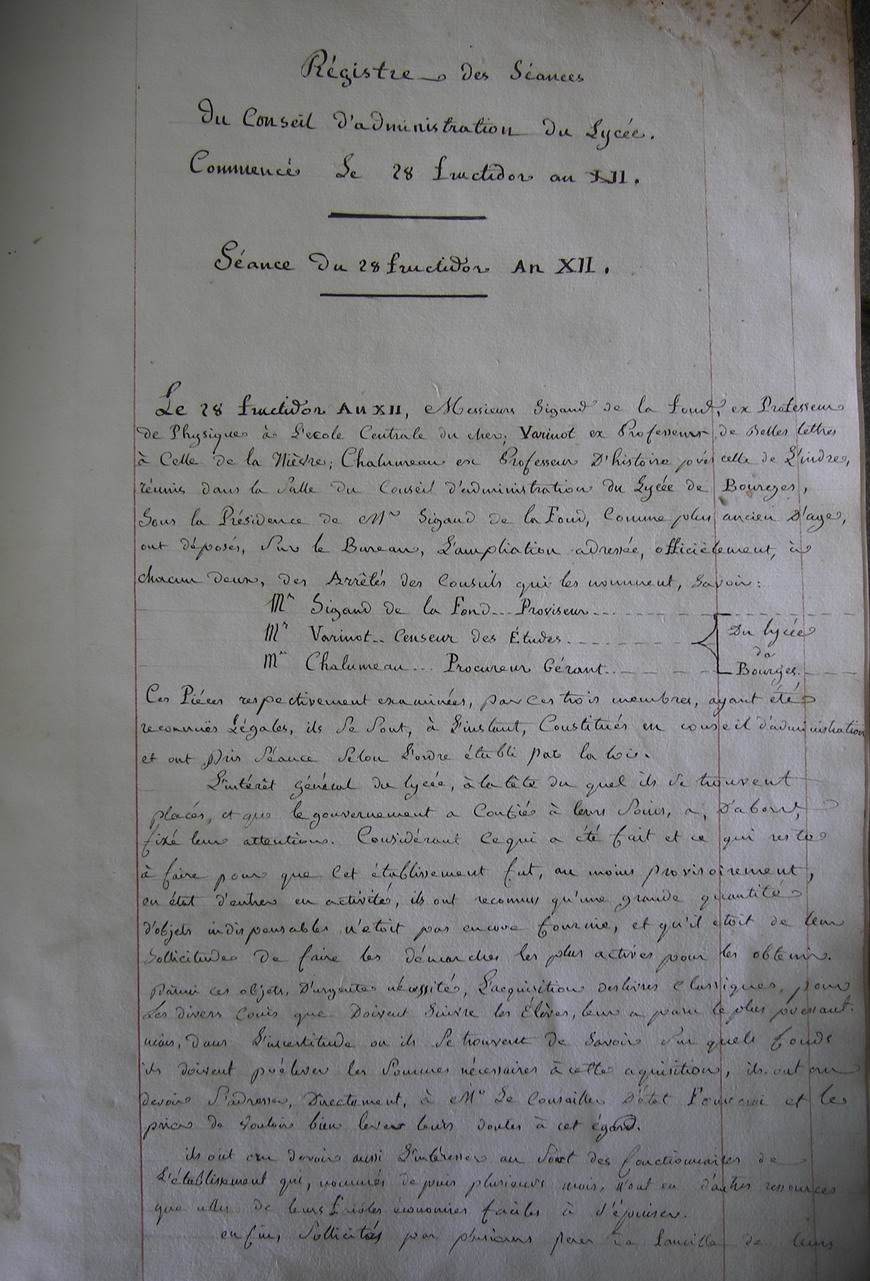 Régistre des Séances
Du Conseil D'administration Du Lycée.
Commencé Le 28 fructidor an XII.
Séance Du 28 fructidor An XII.
Le 28 fructidor An XII, Messieurs Sigaud de la fond, ex Professeur
de Physique à L'école Centrale du cher; Varinot ex Professeur de Belles lettres
à Celle de la Nièvre; Chalumeau ex Professeur D'histoire près celle de L'indre,
réunis dans la Salle du Conseil d'administration du Lycée de Bourges,
Sous la Présidence de Mr Sigaud de la Fond, Comme plus ancien D'age,
ont déposés, Sur le Bureau, L'ampliation adressée, officièlement, à
chacun deux, des Arrêtés des Consuls qui les nomment, Savoir:
Mr Sigaud de la fond... Proviseur...
Mr Varinot.. Censeur des Études.. Du lycée
de
Mr Chalumeau... Procureur Gérant.. Bourges.
Ces Piéces respectivement examinées, par ces trois membres, ayant été
reconnües Légales, ils Se Sont, à L'instant, Constitués en conseil d'administration
et ont pris Séance Selon L'ordre établi par la loi.
L'intérêt général du lycée, à la tête du quel ils Se trouvent
placés, et que le gouvernement a Confiés à leurs Soins, a, D'abord,
fixé leur attention. Considérant Ce qui a été fait et ce qui reste
à faire pour que Cet établissement fut, au moins provisoirement,
en état d'entrer en activité, ils ont reconnu qu'une grande quantité
d'objets indispensables n'étoit pas encore fournie, et qu'il étoit de leur
Sollicitude De faire les démarches les plus actives pour les obtenir.
Parmi ces objets, D'urgente nécessité, L'acquisition des livres Classiques, pour
Les divers Cours que Doivent Suivre les Élèves, leur a paru le plus pressant.
mais, dans L'incertitude ou ils Se trouvent de Savoir Sur quels fonds
ils doivent prélever les Sommes nécessaires à cette aquisition, ils ont cru
devoir S'adresser, Directement, à Mr Le Conseiller D'état Fourcroi et le
prier de Vouloir bien lever leurs doutes à cet égard.
ils ont cru devoir aussi S'intéresser au Sort des fonctionnaires de
L'établissement qui, nommés depuis plusieurs mois, n'ont eu d'autres ressources
que celles de leurs foibles économies faciles à S'épuiser.
enfin, Sollicités par plusieurs pères de famille de leurs